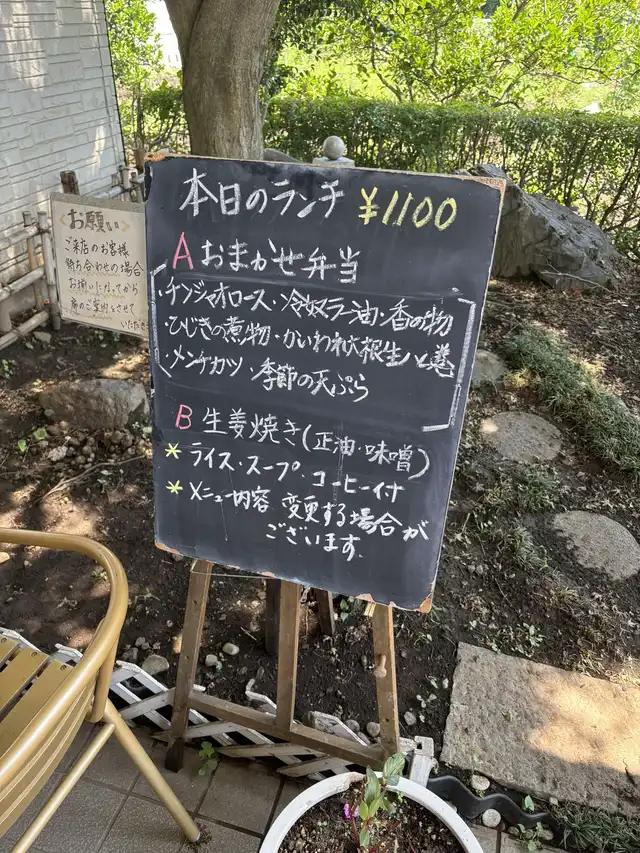 本日のランチ ¥1100
A おまかせ弁当
・チンジャオロース・冷奴ラー油・香の物
・ひじきの煮物・かいわれ大根生ハム巻
・メンチカツ・季節の天ぷら
B 生姜焼き(正油・味噌)
* ライス・スープ・コーヒー付
* メニュー内容 変更する場合が
ございます。
お願い
ご来店のお客様
待ち合わせの場合
お揃いになってから
席のご案内をさせて
いただき